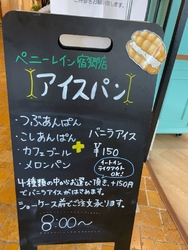 ペニーレイン宿郷店
アイスパン
・つぶあんぱん
・こしあんぱん
・カフェブール
・メロンパン
+
バニラアイス
¥150
イートイン
テイクアウト
OK!
4種類の中からお選び頂き、+150円
でバニラアイスがはさまれます。
ショーケース前でご注文承ります。
8:00〜